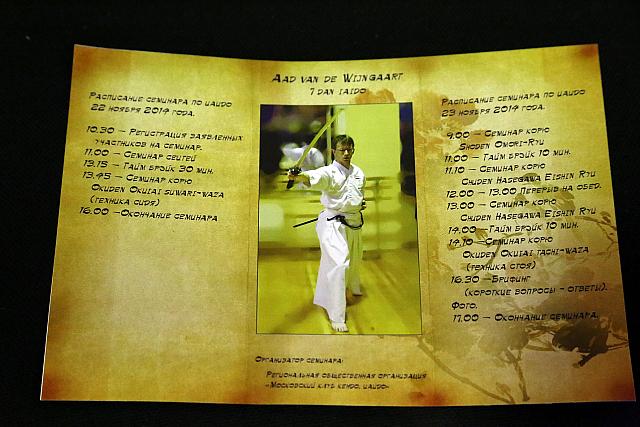 Расписание семинара по иайдо
22 ноября 2014 года.
10.30 – Регистрация заявленных
участников на семинар.
11.00 – Семинар сейтей
13.15 – Тайм брэйк 30 мин.
13.45 – Семинар корю
Okuden Okuiai suwari-waza
(техника сидя)
16.00 –Окончание семинара
Aad van de Wijngaart
7 dan iaido
Организатор семинара:
Региональная общественная организация
«Московский клуб кендо, иайдо»
Расписание семинара по иайдо
23 ноября 2014 года.
9.00 – Семинар корю
Shoden Omori-Ryu
11.00 – Тайм брэйк 10 мин.
11.10 – Семинар корю
Chuden Hasegawa Eishin Ryu
12.00 – 13.00 Перерыв на обед.
13.00 – Семинар корю
Chuden Hasegawa Eishin Ryu
14.00 –Тайм брэйк 10 мин.
14.10 – Семинар корю
Okuden Okuiai tachi-waza
(техника стоя)
16.30 –Брифинг
(короткие вопросы – ответы).
Фото.
17.00 – Окончание семинара.